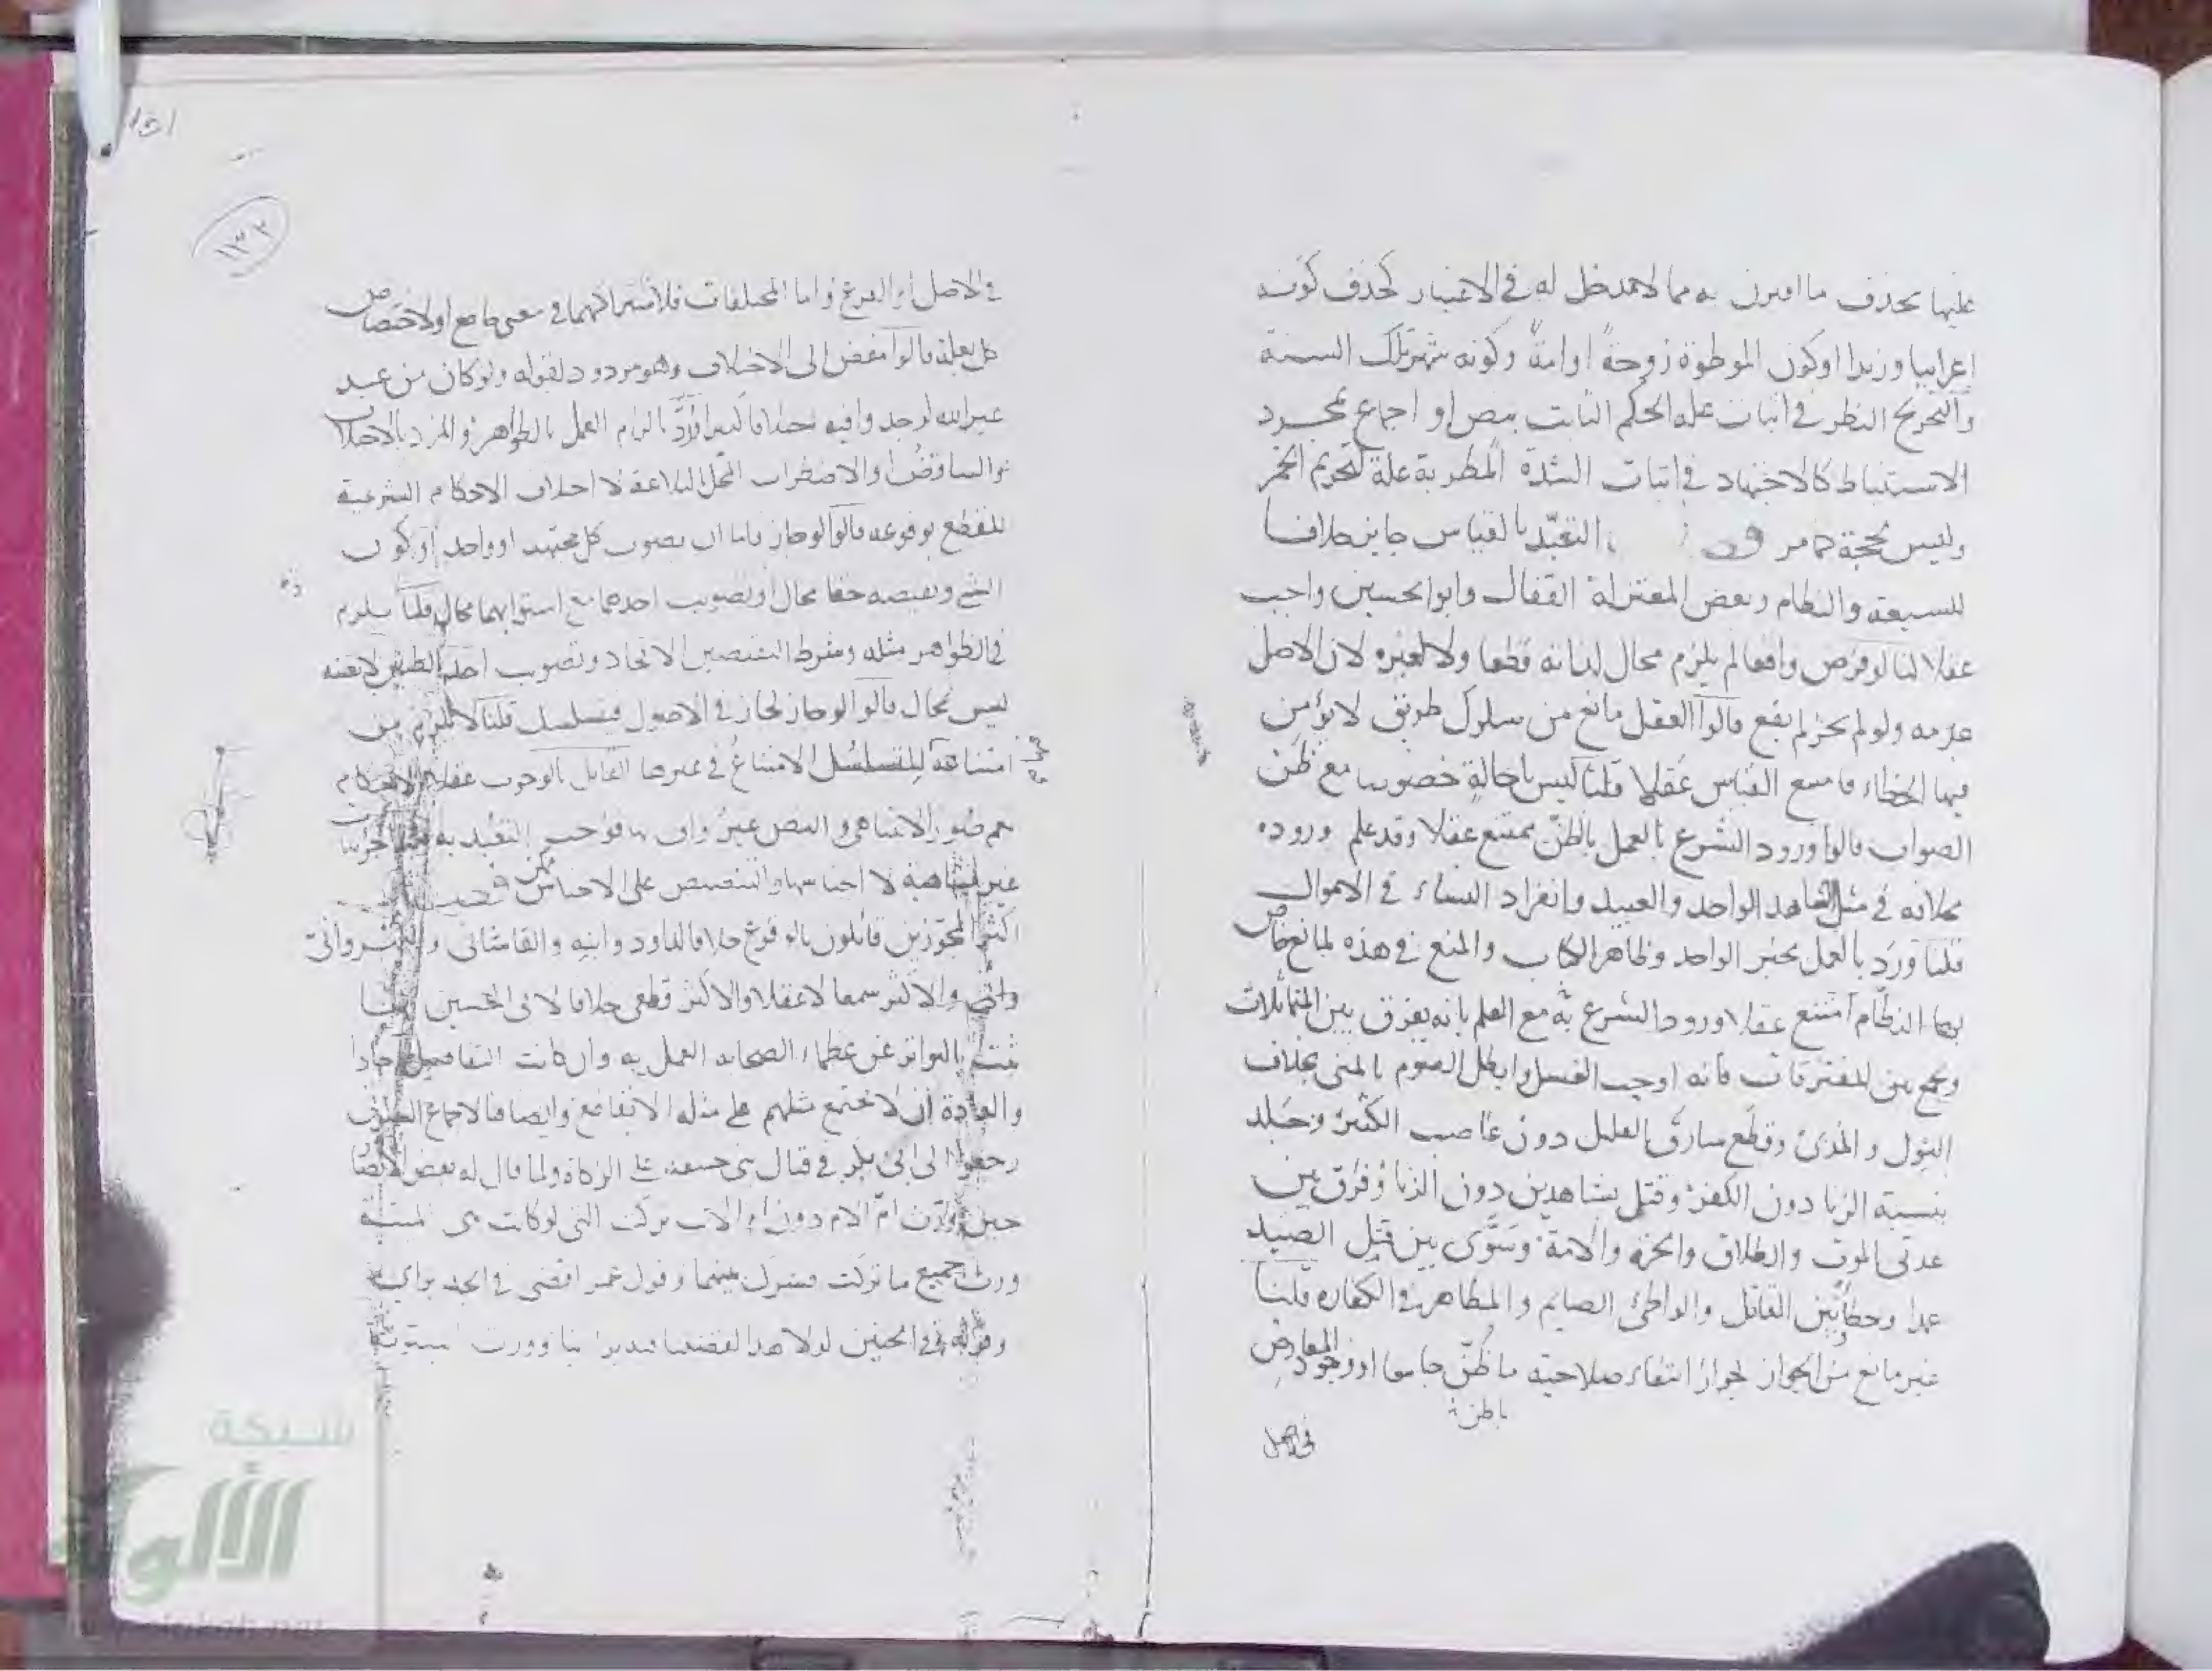 عليها بحذف ما اقترن به مما لا مدخل له في الاعتبار كحذف كونه
اعرابيا وزيدا او كون الموطوة زوجةً او امةً وكونه شهر تلك السنة
والتخريج النظر في اثبات علة الحكم الثابت بنص او اجماع بمجرد
الاستنباط كالاجتهاد في اثبات الشدة المطربة علة لتحريم الخمر
وليس بحجة التعبّد بالقياس جايز خلافا
للشيعة والنظام وبعض المعتزلة القفال وابو الحسين واجب
عقلا لنا لو فرض واقعا لم يلزم محال لذاته قطعا ولا لغيره لان الاصل
عدمه ولو لم يجز لم يقع قالوا العقل مانع من سلوك طريق لا يؤمن
فيها الخطاء فامتنع القياس عقلا قلنا ليس باحالةٍ خصوصا مع ظن
الصواب قالوا ورود الشرع بالعمل بالظنّ ممتنع عقلا وقد علم وروده
بخلافه في مثل الشاهد الواحد والعبيد وانفراد النساء في الاموال
قلنا ورد بالعمل بخبر الواحد وظاهر الكتاب والمنع في هذه لمانع خاص
بها النظّام امتنع عقلا ورود الشرع به مع العلم بانه يفرق بين المتماثلات
ويجمع بين المفترقات فانه اوجب الغسل وابطل الصوم بالمنى بخلاف
البول والمذى وقطع سارق القليل دون غاصب الكثير وجلد
بنسبة الزنا دون الكفر وقتل بشاهدين دون الزنا وفرّق بين
عدتى الموت والطلاق والحرة والامة وسوّى بين قتل الصيد
عمدا وخطأً وبين القاتل والواطئ الصايم والمظاهر في الكفارة قلنا
غير مانع من الجواز لجواز انتفاء صلاحية ما ظُنّ جامعا او وجود المعارض
في الاصل
١٥١
١٣٢
في الاصل او الفرع واما المختلفات فلاشتراكهما في معنى جامع او لاختصاص
كل بعلة قالوا مفض الى الاختلاف وهو مردود لقوله ولو كان من عند
غير الله لوجدوا فيه اختلافا كثيرا ورُدّ بالزام العمل بالظواهر والمراد بالاختلاف
التناقض والاضطراب المخل بالبلاغة لا اختلاف الاحكام الشرعية
للقطع بوقوعه قالوا لو جاز فاما ان يصوب كل مجتهد او واحد او كون
الشئ ونقيضه حقا محال او تصويب احدهما مع استوايهما محال قلنا يلزم
في الظواهر مثله وشرط النقيضين الاتحاد وتصويب احد الظنين لا بعينه
ليس بمحال قالوا لو جاز لجاز في الاصول فيتسلسل قلنا لا يلزم من
امتناعه للتسلسل الامتناع في غيرها القايل بالوجوب عقلا الاحكام
تعم صُوَرا لا تتناهى والنص غير وافٍ بها فوجب التعبد به
غير متناهية لا اجناسها والتنصيص على الاجناس ممكن
اكثر المجوزين قائلون بالوقوع خلافا لداود وابنه والقاشانى والنهروانى
والاكثر سمعا لا عقلا والاكثر قطعى خلافا لابى الحسين لنا
ثبت بالتواتر عن عظماء الصحابة العمل به وان كانت التفاصيل احادا
والعادة ان لا يجتمع مثلهم على مثله الا بقاطع وايضا فالاجماع
رجعوا الى ابى بكر في قتال بنى حنيفة على الزكاة ولما قال له بعض الانصار
حين ورّث امّ الام دون ام الاب تركت التى لو كانت هى الميتة
ورث جميع ما تركت فشرك بينهما وقول عمر اقضى في الجد برايى
وقوله في الجنين لولا هذا لقضينا فيه براينا وورث المبتوتة
شبكة
الألوكة